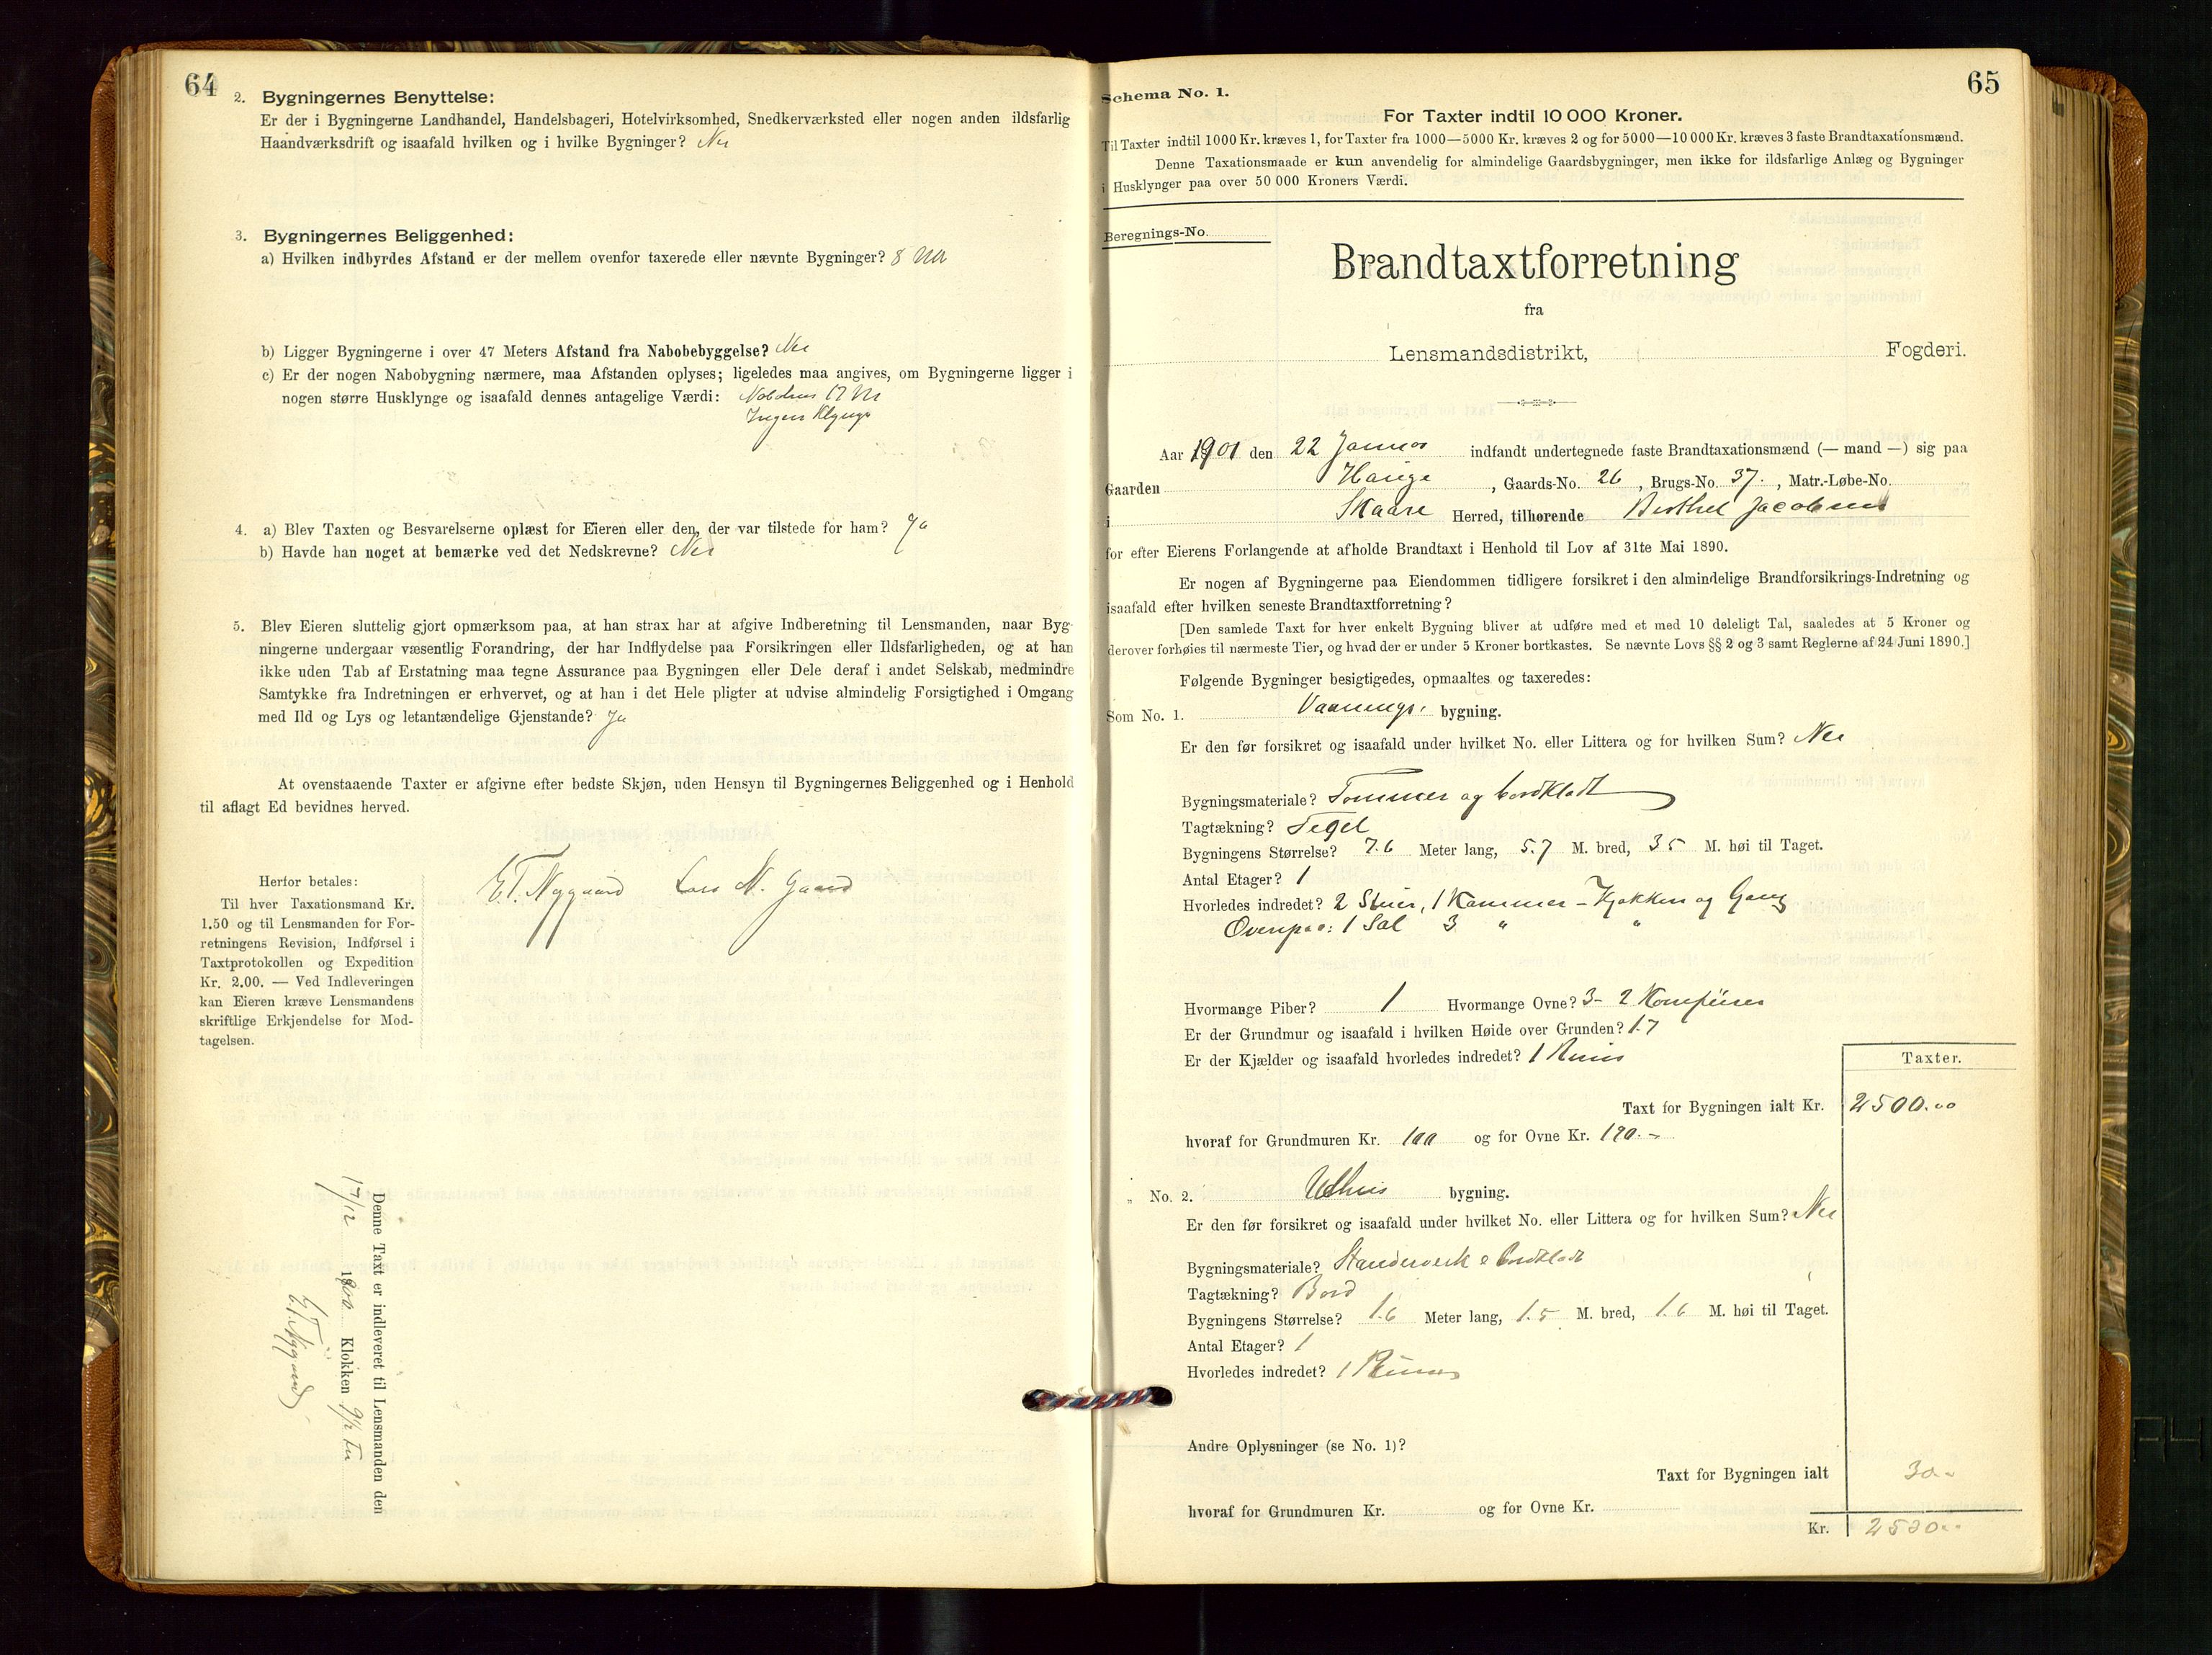 64
2. Bygningernes Benyttelse:
Er der i Bygningerne Landhandel, Handelsbageri, Hotelvirksomhed, Snedkerværksted eller nogen anden ildsfarlig
Haandværksdrift og isaafald hvilken og i hvilke Bygninger? Nei
3. Bygningernes Beliggenhed:
a) Hvilken indbyrdes Afstand er der mellem ovenfor taxerede eller nævnte Bygninger? 8 M
b) Ligger Bygningerne i over 47 Meters Afstand fra Nabobebyggelse? Nei
c) Er der nogen Nabobygning nærmere, maa Afstanden oplyses; ligeledes maa angives, om Bygningerne ligger i
nogen større Husklynge og isaafald dennes antagelige Værdi: Nabohus 17 M
Ingen Klynge
4. a) Blev Taxten og Besvarelserne oplæst for Eieren eller den, der var tilstede for ham? Ja
b) Havde han noget at bemærke ved det Nedskrevne? Nei
5. Blev Eieren sluttelig gjort opmærksom paa, at han strax har at afgive Indberetning til Lensmanden, naar Byg-
ningerne undergaar væsentlig Forandring, der har Indflydelse paa Forsikringen eller Ildsfarligheden, og at han
ikke uden Tab af Erstatning maa tegne Assurance paa Bygningen eller Dele deraf i andet Selskab, medmindre
Samtykke fra Indretningen er erhvervet, og at han i det Hele pligter at udvise almindelig Forsigtighed i Omgang
med Ild og Lys og letantændelige Gjenstande? Ja
At ovenstaaende Taxter er afgivne efter bedste Skjøn, uden Hensyn til Bygningernes Beliggenhed og i Henhold
til aflagt Ed bevidnes herved.
E.T. Nygaard Lars N. Gaard
Herfor betales:
Til hver Taxationsmand Kr.
1.50 og til Lensmanden for For-
retningens Revision, Indførsel i
Taxtprotokollen og Expedition
Kr. 2.00. — Ved Indleveringen
kan Eieren kræve Lensmandens
skriftlige Erkjendelse for Mod-
tagelsen.
Denne Taxt er indleveret til Lensmanden den
17/12 1900 Klokken 9½ Fm
E.T. Nygaard
65
Schema No. 1.
For Taxter indtil 10 000 Kroner.
Til Taxter indtil 1000 Kr. kræves 1, for Taxter fra 1000—5000 Kr. kræves 2 og for 5000—10 000 Kr. kræves 3 faste Brandtaxationsmænd.
Denne Taxationsmaade er kun anvendelig for almindelige Gaardsbygninger, men ikke for ildsfarlige Anlæg og Bygninger
i Husklynger paa over 50 000 Kroners Værdi.
Beregnings-No.
Brandtaxtforretning
fra
Lensmandsdistrikt, Fogderi.
Aar 1901 den 22 Januar indfandt undertegnede faste Brandtaxationsmænd (— mand —) sig paa
Gaarden Hauge, Gaards-No. 26, Brugs-No. 37, Matr.-Løbe-No.
i Skaare Herred, tilhørende Berthel Jacobsen
for efter Eierens Forlangende at afholde Brandtaxt i Henhold til Lov af 31te Mai 1890.
Er nogen af Bygningerne paa Eiendommen tidligere forsikret i den almindelige Brandforsikrings-Indretning og
isaafald efter hvilken seneste Brandtaxtforretning?
[Den samlede Taxt for hver enkelt Bygning bliver at udføre med et med 10 deleligt Tal, saaledes at 5 Kroner og
derover forhøies til nærmeste Tier, og hvad der er under 5 Kroner bortkastes. Se nævnte Lovs §§ 2 og 3 samt Reglerne af 24 Juni 1890.]
Følgende Bygninger besigtigedes, opmaaltes og taxeredes:
Som No. 1. Vaanings bygning.
Er den før forsikret og isaafald under hvilket No. eller Littera og for hvilken Sum? Nei
Bygningsmateriale? Tømmer og bordklædt
Tagtækning? Tegel
Bygningens Størrelse? 7.6 Meter lang, 5.7 M. bred, 3.5 M. høi til Taget.
Antal Etager? 1
Hvorledes indredet? 2 Stuer, 1 Kammer - Kjøkken og Gang
Ovenpaa: 1 Sal 3 " "
Hvormange Piber? 1 Hvormange Ovne? 3- 2 Komfurer
Er der Grundmur og isaafald i hvilken Høide over Grunden? 1.7
Er der Kjælder og isaafald hvorledes indredet? 1 Rum
Taxter.
Taxt for Bygningen ialt Kr. 2500.00
hvoraf for Grundmuren Kr. 100 og for Ovne Kr. 190.-
" No. 2. Udhus bygning.
Er den før forsikret og isaafald under hvilket No. eller Littera og for hvilken Sum? Nei
Bygningsmateriale? Standerverk & Bordklædt
Tagtækning? Bord
Bygningens Størrelse? 1.6 Meter lang, 1.5 M. bred, 1.6 M. høi til Taget.
Antal Etager? 1
Hvorledes indredet? 1 Rum
Andre Oplysninger (se No. 1)?
Taxt for Bygningen ialt 30.-
hvoraf for Grundmuren Kr. og for Ovne Kr.
Kr. 2530.-